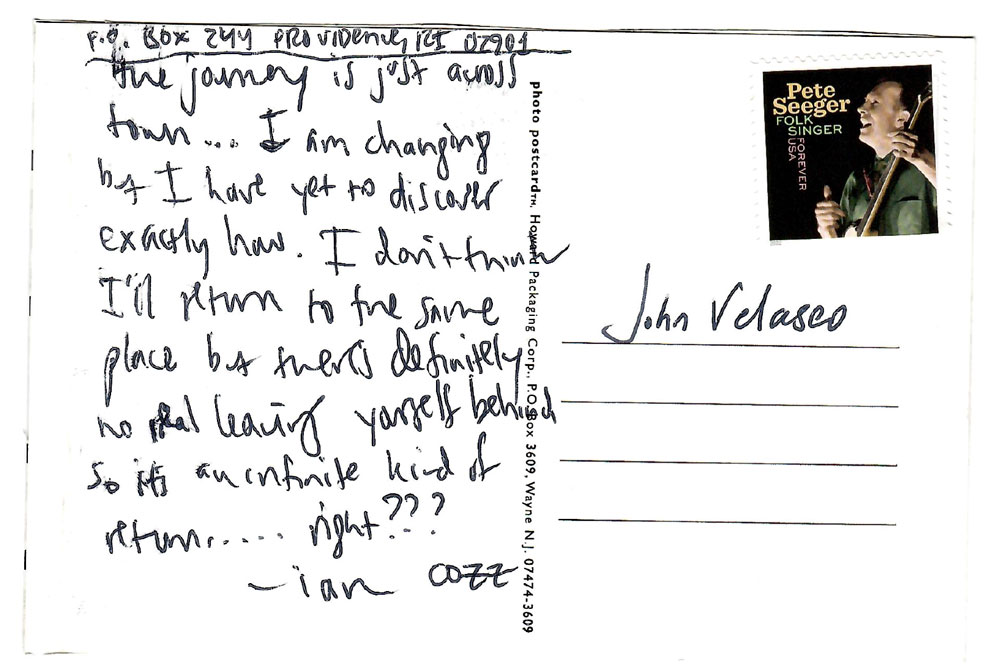 P.O. BOX 244 PROVIDENCE, RI 02901
the journey is just across
town... I am changing
but I have yet to discover
exactly how. I don't think
I'll return to the same
place but there's definitely
no real leaving yourself behind
so it's an infinite kind of
return..... right???
- ian COZZ
photo postcardTM, Howard Packaging Corp., P.O. Box 3609, Wayne N.J. 07474-3609
Pete
Seeger
FOLK
SINGER
FOREVER
USA
John Velasco